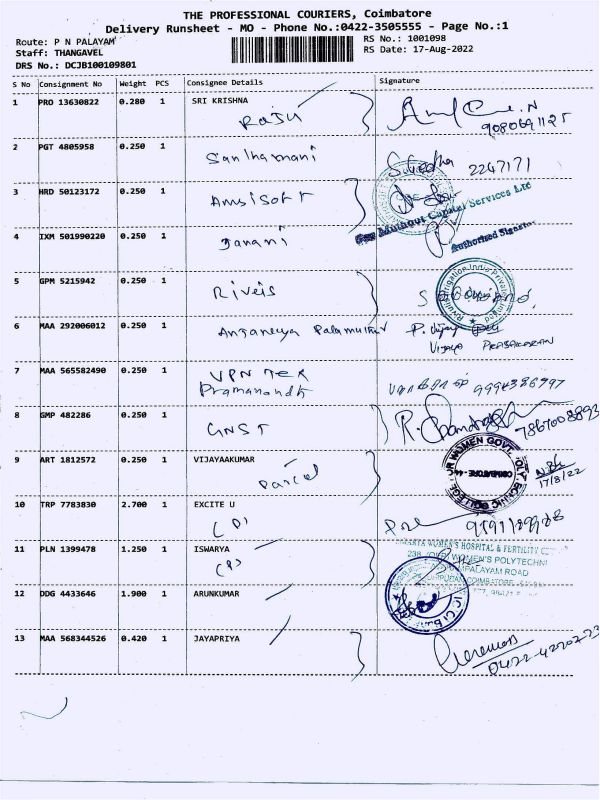 THE PROFESSIONAL COURIERS, Coimbatore
Delivery Runsheet - MO - Phone No.:0422-3505555 - Page No.:1
Route: P N PALAYAM RS No.: 1001098
Staff: THANGAVEL RS Date: 17-Aug-2022
DRS No.: DCJB100109801
S No Consignment No Weight PCS Consignee Details Signature
1 PRO 13630822 0.280 1 SRI KRISHNA
Raju
9080691125
2 PGT 4805958 0.250 1
Santhamani 2247171
3 HRD 50123172 0.250 1
Amsisoft
Capital Services Ltd
4 IXM 501990220 0.250 1
Janani
Authorised Signatory
5 GPM 5215942 0.250 1
Riveis
6 MAA 292006012 0.250 1
Anjaneya P. Vijay
VIJAYA PRABAKARAN
7 MAA 565582490 0.250 1
VPN TEX
Pramanandh
8 GMP 482286 0.250 1
GNST 7867008893
WOMEN GOVT. POLYTECHNIC COLLEGE
COIMBATORE
9 ART 1812572 0.250 1 VIJAYAAKUMAR
Parcel
17/8/22
10 TRP 7783830 2.700 1 EXCITE U
(P)
11 PLN 1399478 1.250 1 ISWARYA
(P)
WOMEN'S HOSPITAL & FERTILITY
WOMEN'S POLYTECHNI
PALAYAM ROAD
COIMBATORE
12 DDG 4433646 1.900 1 ARUNKUMAR
13 MAA 568344526 0.420 1 JAYAPRIYA